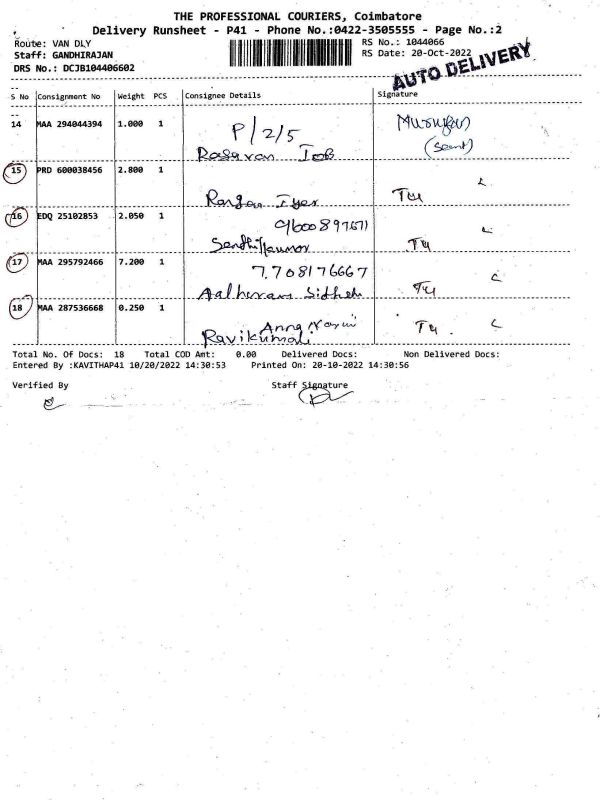 THE PROFESSIONAL COURIERS, Coimbatore
Delivery Runsheet - P41 - Phone No.:0422-3505555 - Page No.:2
Route: VAN DLY
RS No.: 1044066
Staff: GANDHIRAJAN
RS Date: 20-Oct-2022
DRS No.: DCJB104406602
AUTO DELIVERY
S No Consignment No Weight PCS Consignee Details Signature
14 MAA 294044394 1.000 1 P/2/5 Murugan
IOB
15 PRD 600038456 2.800 1
Rangan Iyer
16 EDQ 25102853 2.050 1
Senthilkumar
17 MAA 295792466 7.200 1 7708176667
18 MAA 287536668 0.250 1
Total No. Of Docs: 18 Total COD Amt: 0.00 Delivered Docs: Non Delivered Docs:
Entered By :KAVITHAP41 10/20/2022 14:30:53 Printed On: 20-10-2022 14:30:56
Verified By Staff Signature